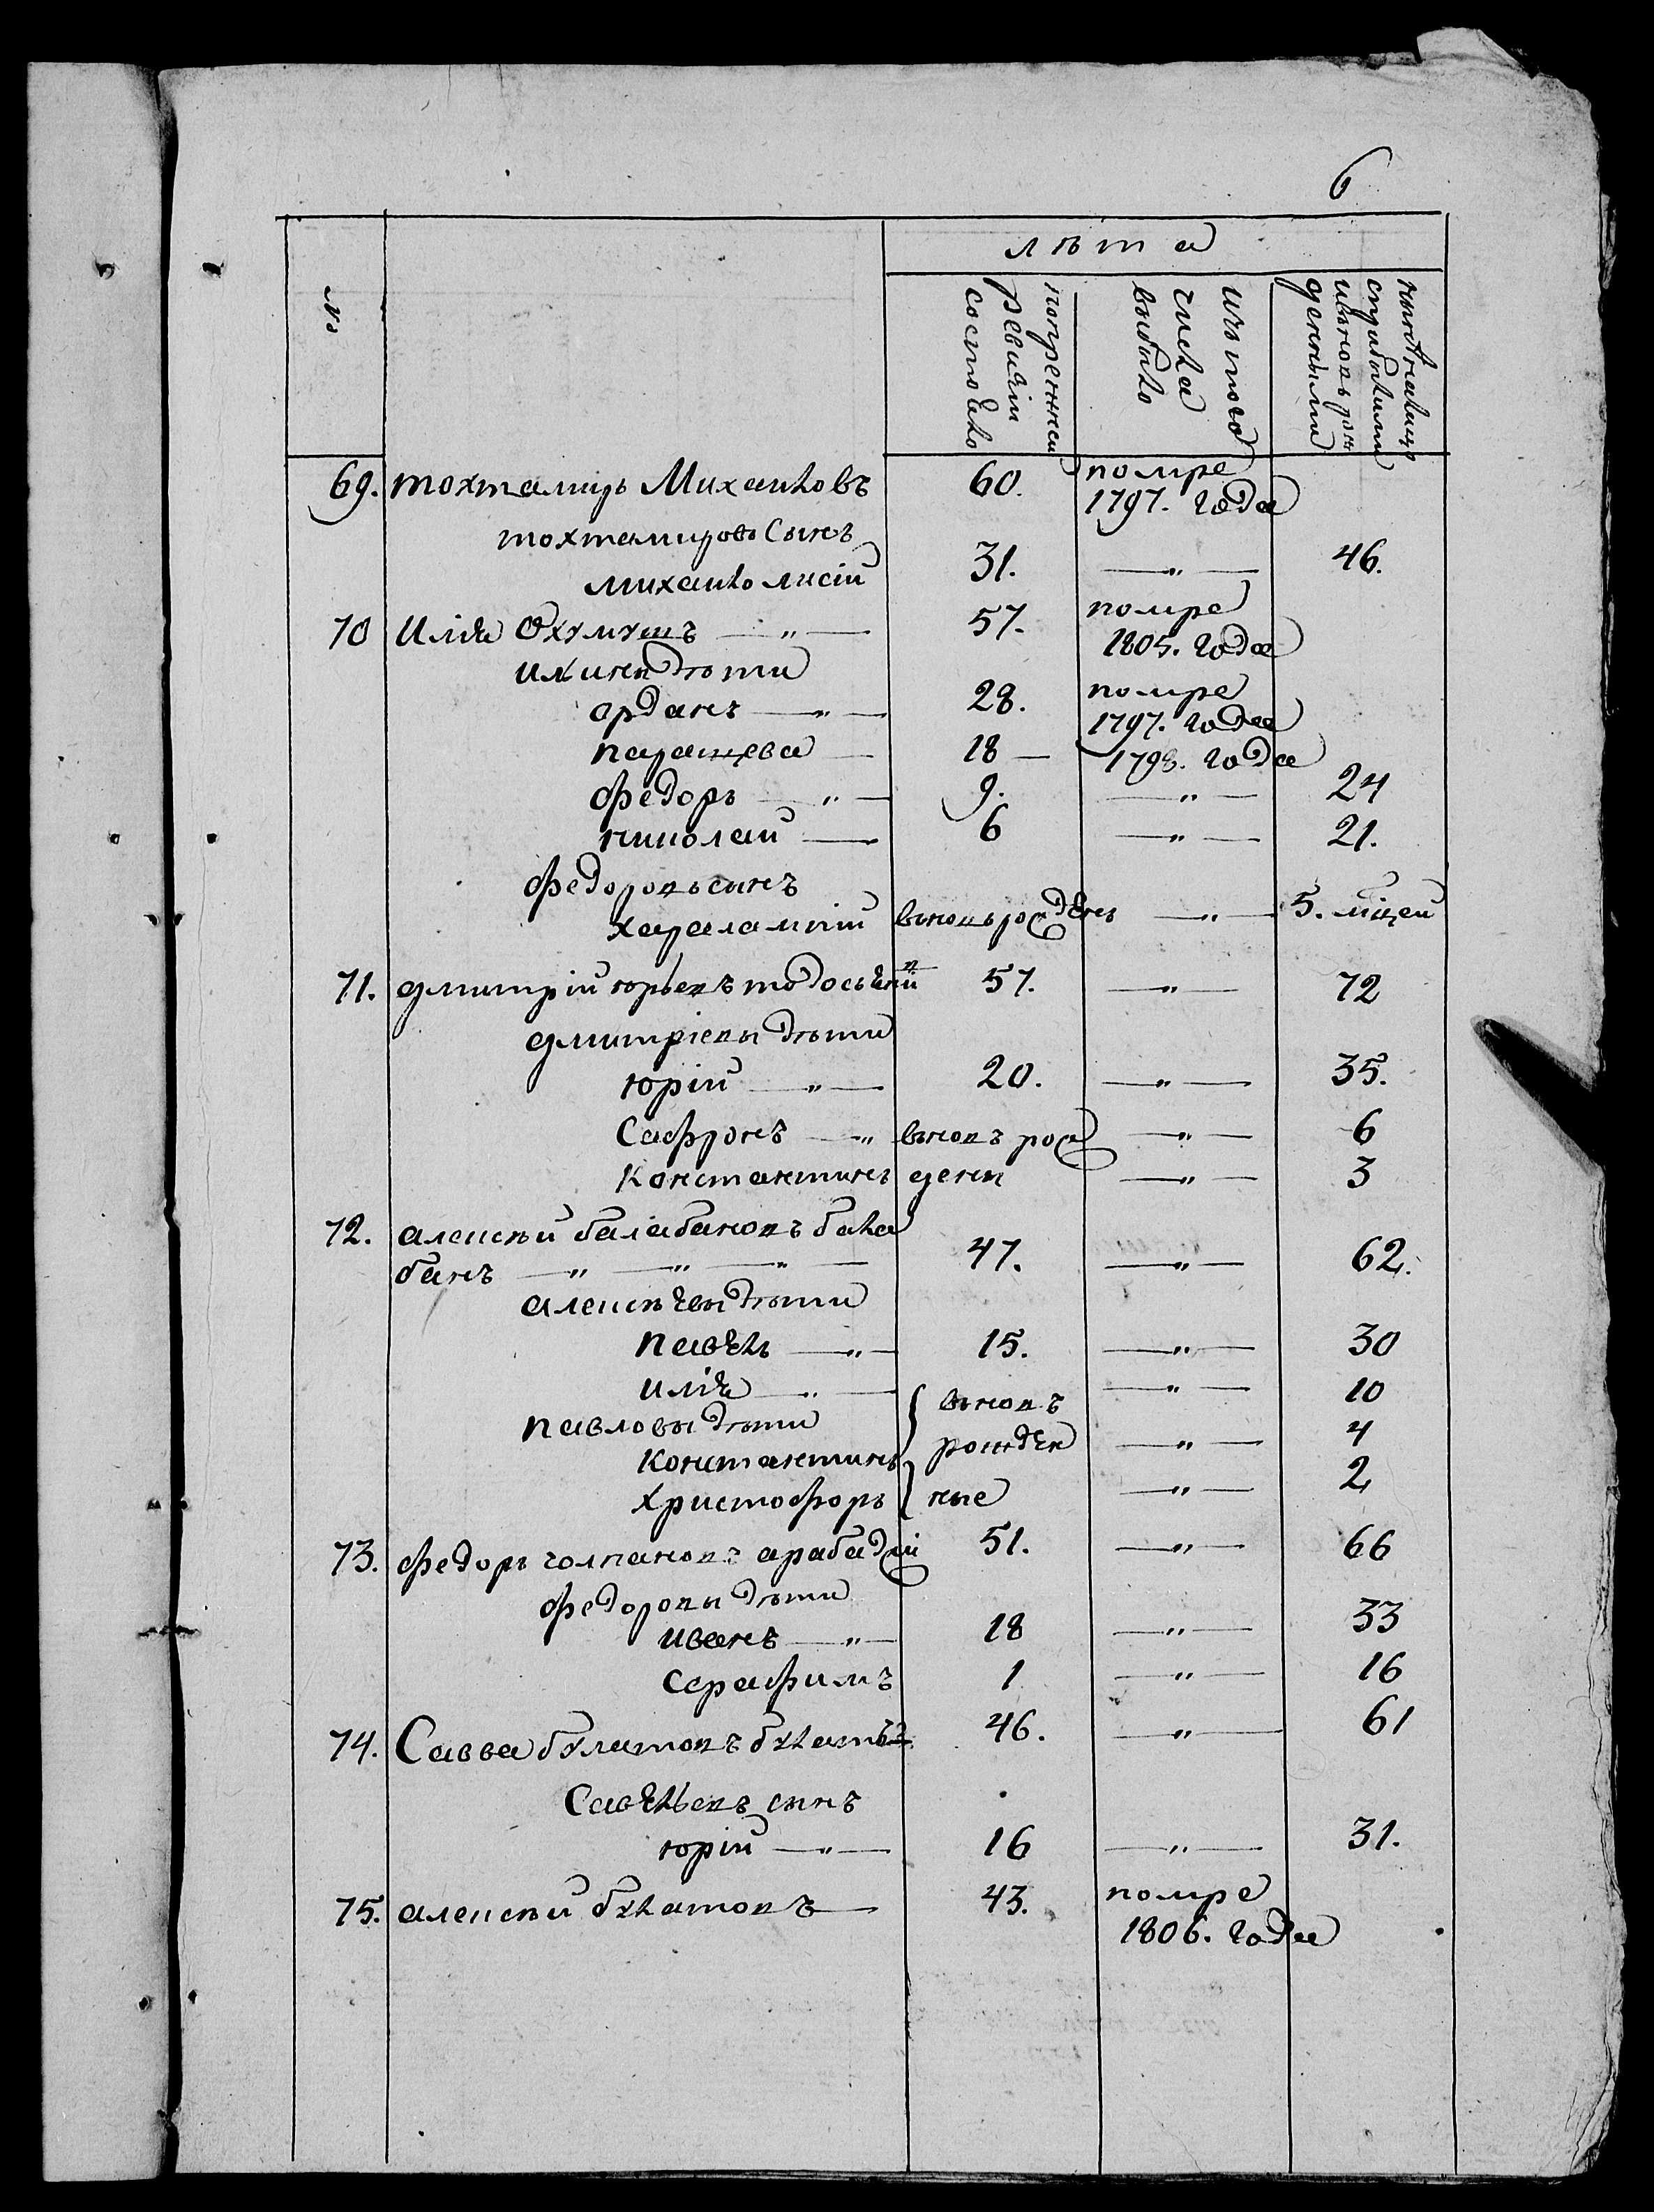 6
№
лѣта
попрежней ревизіи состояло
изъ того числа выбыло
69. тохтамиръ Михаиловъ 60. помре
1797. года
тохтамировъ Сынъ
михаило мисій 31. —„— 46.
70 Илія Ѳхумушъ —„— 57. помре
1805. года
илиинъ дѣти
ордань —„— 28. помре
1797. года
паращева — 18 — 1798. года
федоръ —„— 9. —„— 24
николай — 6 —„— 21.
федоровъ сынъ
харалампій вновь рожденъ —„— 5. мѣцей
71. дмитрій юрьевъ 57. —„— 72
дмитріевы дѣти
юрій —„— 20. —„— 35.
Сафронъ —„ вновъ рож —„— 6
Константинъ дены —„— 3
72. алексѣй балабановъ бала
банъ —„—„—„— 47. —„— 62.
алексѣевы дѣти
павелъ —„— 15. —„— 30
илія —„— вновъ —„— 10
павловы дѣти
Константинъ рожден —„— 4
христофоръ ные —„— 2
73. федоръ чолпановъ арабаджи 51. —„— 66
федоровы дѣти
иванъ —„— 18 —„— 33
серафимъ 1 —„— 16
74. Савва булатовъ булатъ 46. —„— 61
Савельевъ сынъ
юрій —„— 16 —„— 31.
75. алексѣй булатовъ — 43. помре
1806. года